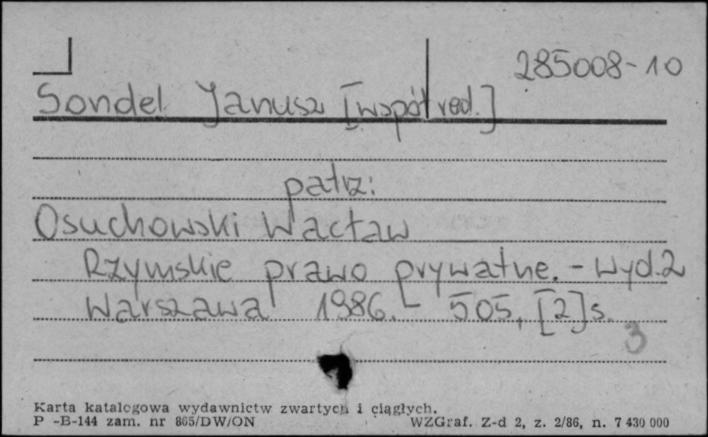 285008-10
Sondel Janusz [współred.]
patrz:
Osuchowski Wacław
Rzymskie prawo prywatne. - Wyd. 2
Warszawa 1986. - 505, [2] s.
3
Karta katalogowa wydawnictw zwartych i ciągłych.
P -B-144 zam. nr 865/DW/ON WZGraf. Z-d 2, z. 2/86, n. 7 430 000